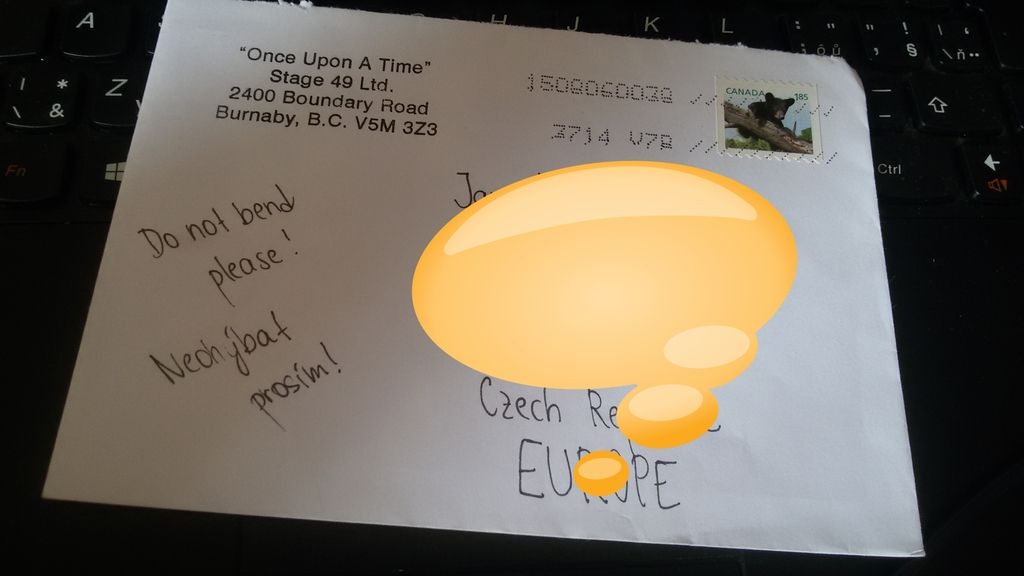 "Once Upon A Time"
Stage 49 Ltd.
2400 Boundary Road
Burnaby, B.C. V5M 3Z3
1508060038
3714 V7B
CANADA 185
Do not bend
please!
Neohýbat
prosím!
Czech
EUROPE
A
H
J
K
L
Z
Fn
Ctrl